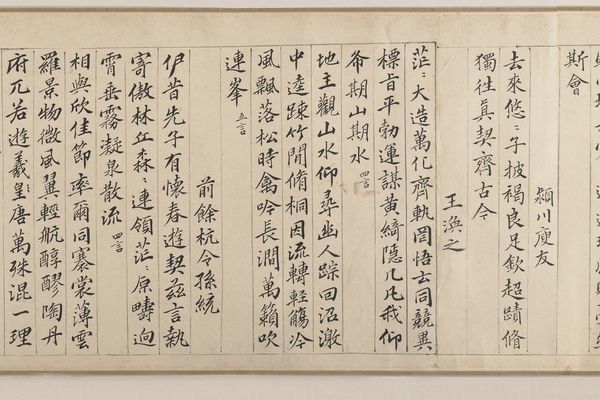 斯會
頴川庾友
去來悠〻子披褐良足欽超蹟脩
獨往真契齊古今
王渙之
茫〻大造萬化齊軌罔悟玄同競異
標旨平勃運謀黃綺隱几凡我仰
希期山期水 四言
地主觀山水仰尋幽人踪回沼激
中逵踈竹間脩桐因流轉輕觴冷
風飄落松時禽吟長澗萬籟吹
連峯 五言
前餘杭令孫統
伊昔先子有懷春遊契茲言執
寄傲林丘森〻連領茫〻原疇迥
霄垂霧凝泉散流 四言
相與欣佳節率爾同褰裳薄雲
羅景物微風翼輕航醇醪陶丹
府兀若遊羲皇唐萬殊混一理